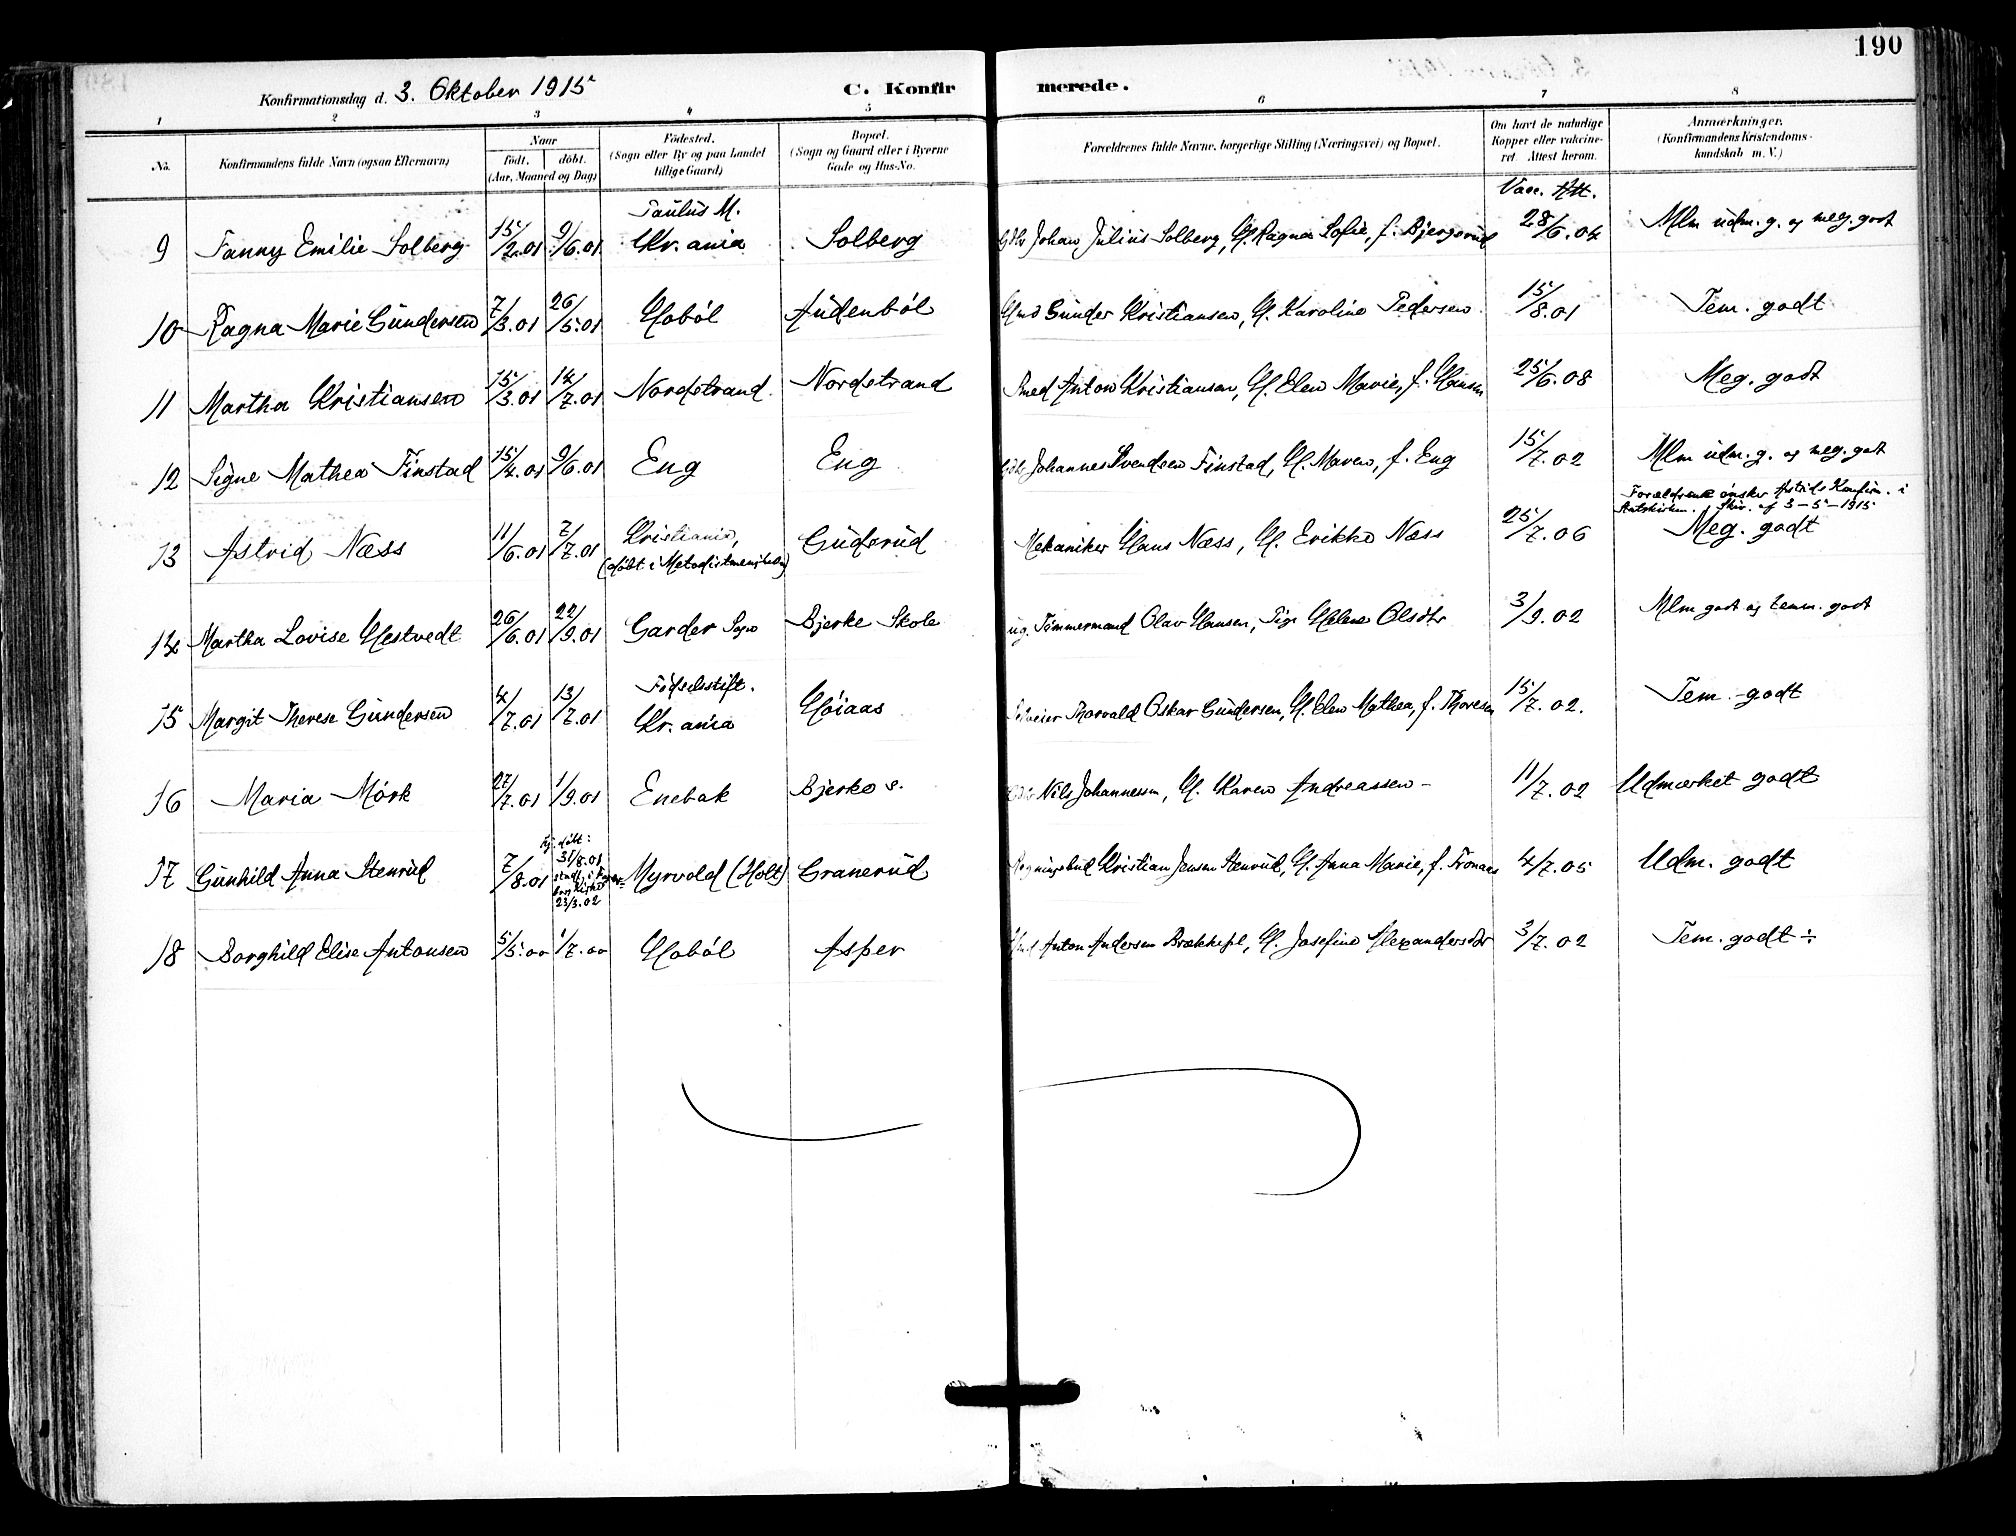 190
Konfirmationsdag d. 3. Oktober 1915 C. Konfirmerede.
1 2 3 4 5 6 7 8
No. Konfirmandens fulde Navn (ogsaa Efternavn) Naar født. døbt. (Aar, Maaned og Dag) Fødested. (Sogn eller By og paa Landet tillige Gaard) Bopæl. (Sogn og Gaard eller i Byerne Gade og Hus-No. Forældrenes fulde Navne, borgerlige Stilling (Næringsvei) og Bopæl. Om havt de naturlige Kopper eller vaccineret. Attest herom. Anmærkninger. (Konfirmandens Kristendomskundskab m. V.)
Vacc. Att.
9 Fanny Emilie Solberg 15/2.01 9/6.01 Paulus M. Kr.ania Solberg Johan Julius Solberg, H. Ragna Sofie, f. Bjergerud 28/6.04 Mlm udm. g. og meg. godt
10 Ragna Marie Gundersen 7/3.01 26/5.01 Hobøl Audenbøl Gmd Gunder Kristiansen, H. Karoline Pedersen 15/8.01 Tem. godt
11 Martha Kristiansen 15/3.01 14/7.01 Nordstrand Nordstrand Smed Anton Kristiansen, H. Elen Marie, f. Hansen 25/6.08 Meg. godt
12 Signe Mathea Finstad 15/4.01 9/6.01 Eng Eng Johannes Svendsen Finstad, H. Maren, f. Eng 15/7.02 Mlm udm. g. og meg. godt
Forældrene ønsker Astrids Konfirm. i
Skriv. af 3-5-1915
13 Astrid Næss 11/6.01 7/7.01 Kristiania, (døbt i Metodistmenigheden) Guderud Mekaniker Hans Næss, H. Erikka Næss 25/7.06 Meg. godt
14 Martha Lovise Hestvedt 26/6.01 22/9.01 Garder Sogn Bjerke Skole ug. Tømmermand Olav Hansen, Pige Helene Olsdtr 3/9.02 Mlm godt og temm. godt
15 Margit Therese Gundersen 4/7.01 13/7.01 Fødselsstift. Kr.ania Høiaas Thorvald Oskar Gundersen, H. Elen Mathea, f. Thoresen 15/7.02. Tem. godt
16 Maria Mørk 27/7.01 1/9.01 Enebak Bjerke s. Nils Johannessen, H. Karen Andreassen - 11/7.02 Udmærket godt
17 Gunhild Anna Stenrud 7/8.01 Hj. døbt: 31/8.01 stadf. i Kirke 23/3.02 Myrvold (Holt) Granerud Kristian Jensen Stenrud, H. Anna Marie, f. Tronaas 4/7.05 Udm. godt
18 Borghild Elise Antonsen 5/5.00 1/7.00 Hobøl Asper Gmd Anton Andersen Brækkepl, H. Josefine Alexandersdtr 3/7.02 Tem. godt ÷